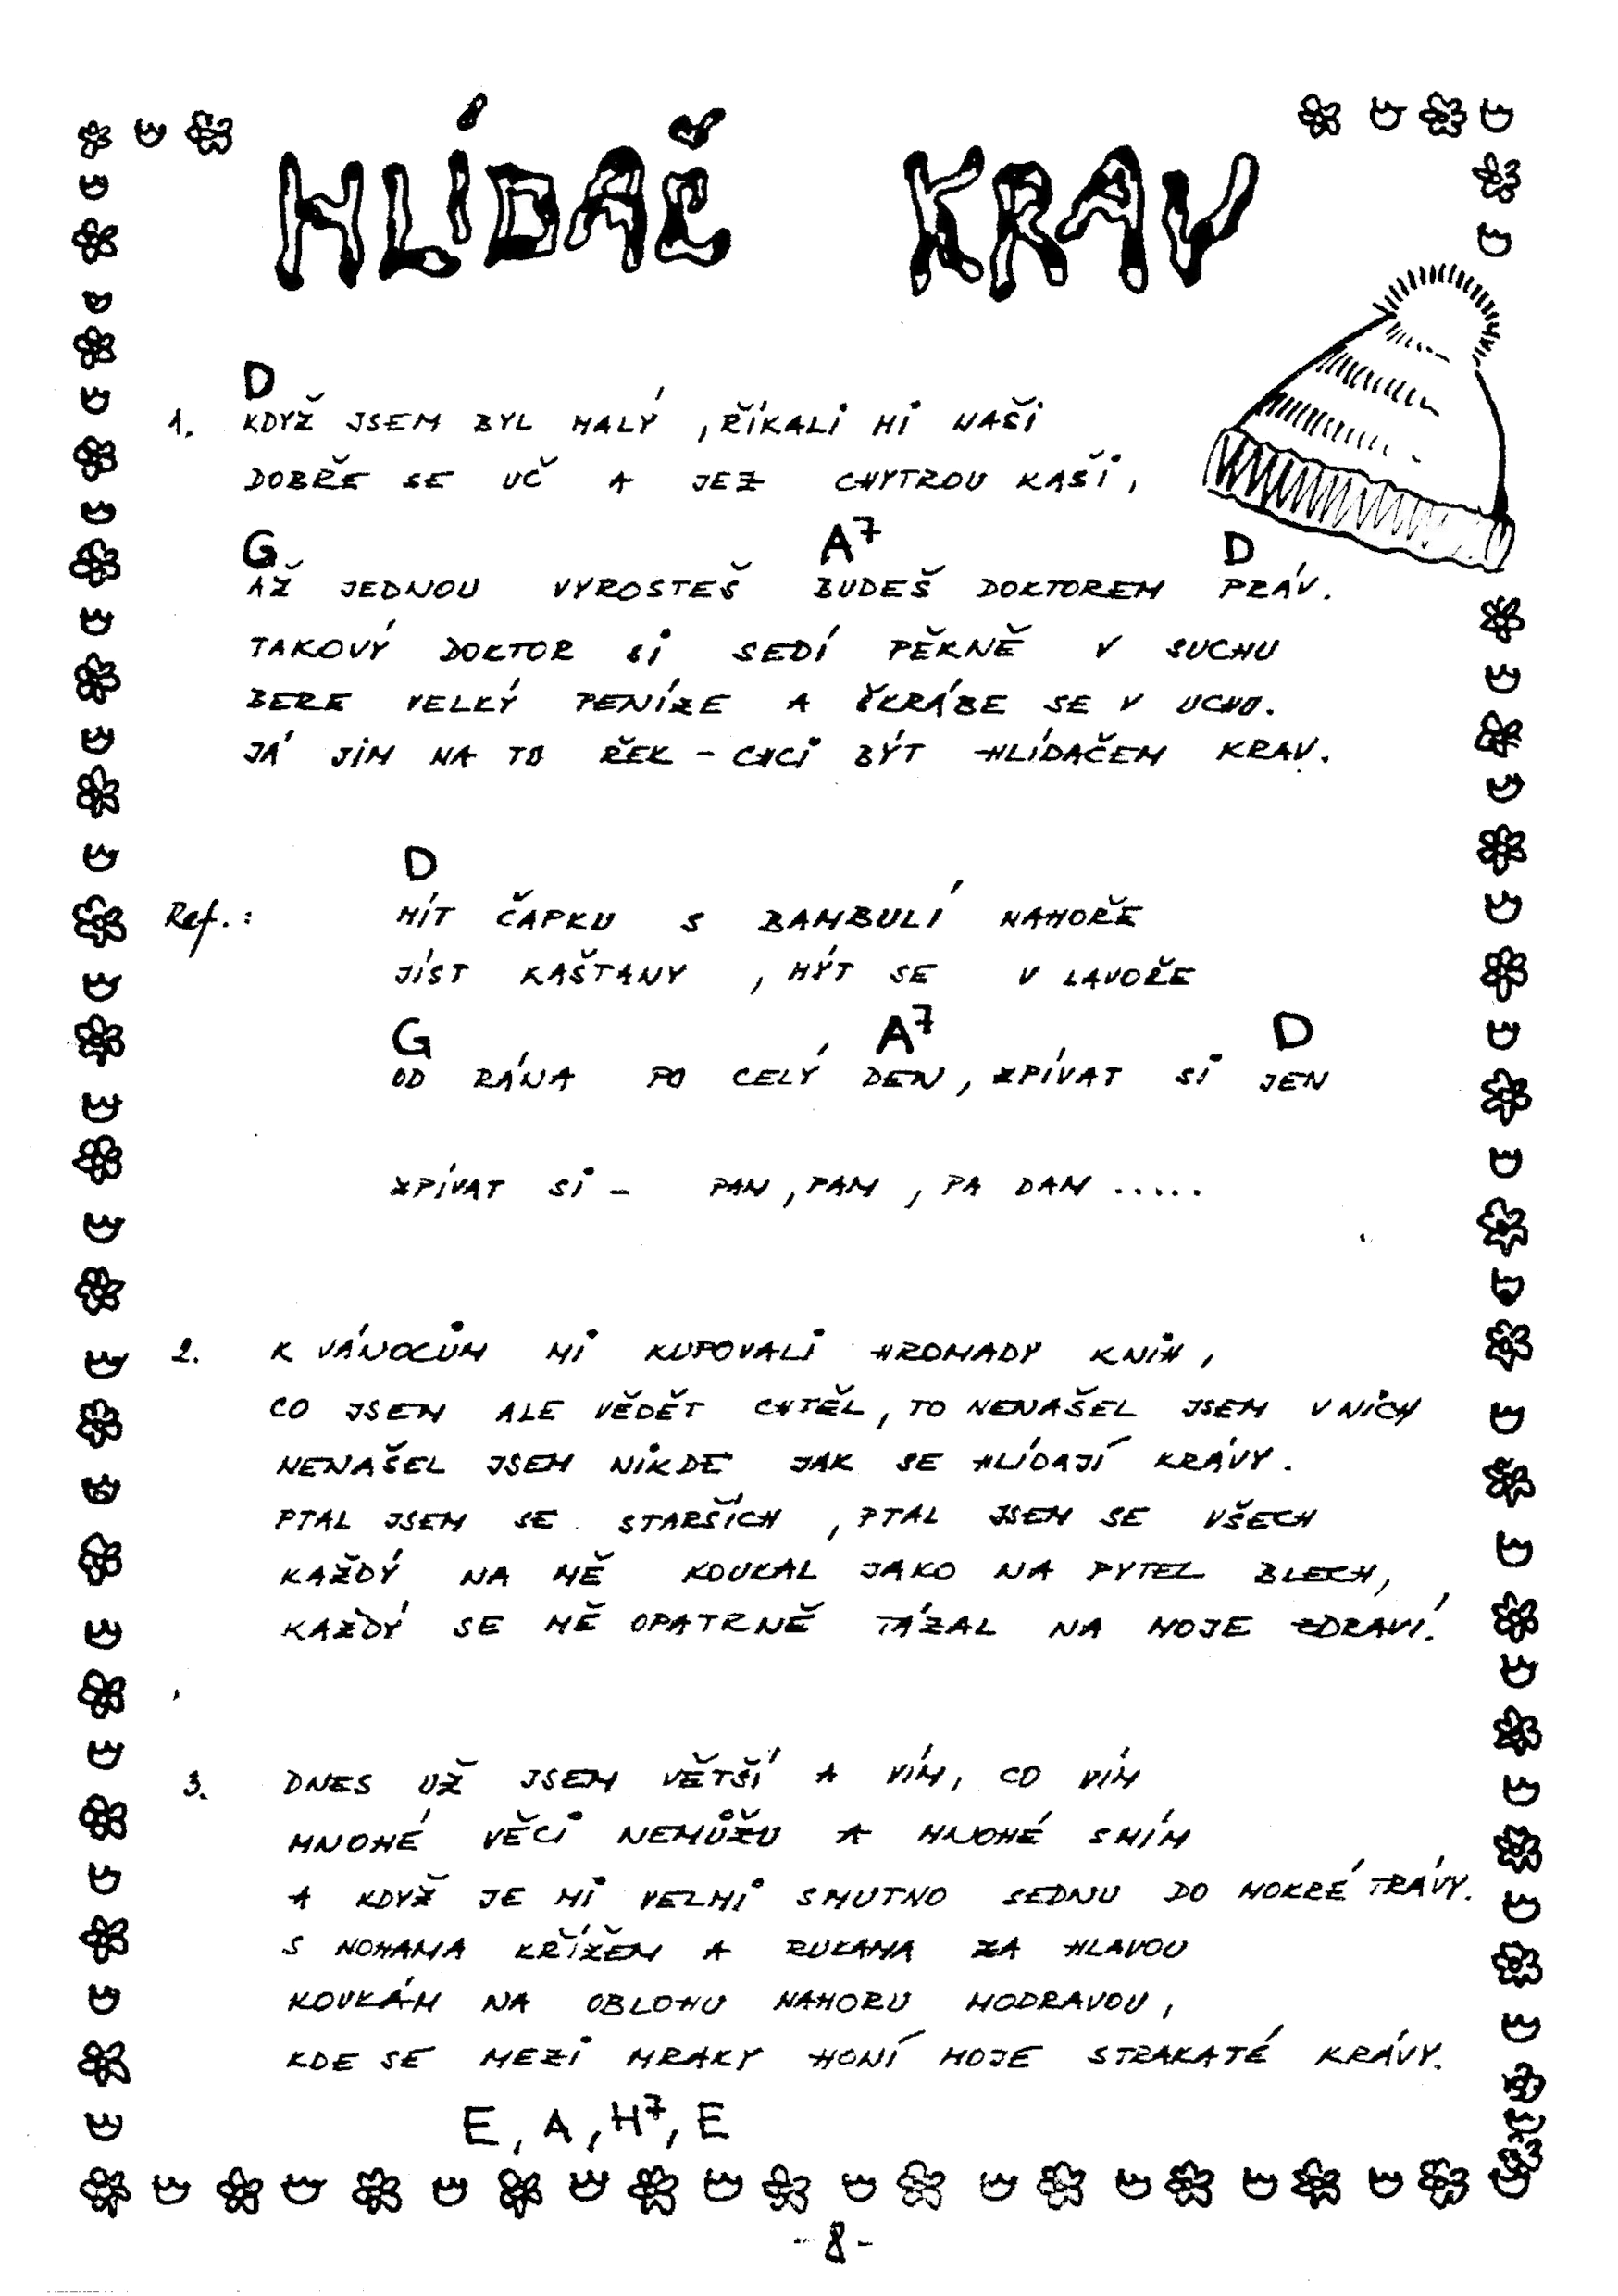 HLÍDAČ KRAV
D
1. KDYŽ JSEM BYL MALÝ, ŘÍKALI MI NAŠI
DOBŘE SE UČ A JEZ CHYTROU KAŠI,
G A7 D
AŽ JEDNOU VYROSTEŠ BUDEŠ DOKTOREM PRÁV.
TAKOVÝ DOKTOR SI SEDÍ PĚKNĚ V SUCHU
BERE VELKÝ PENÍZE A ŠKRÁBE SE V UCHU.
JÁ JIM NA TO ŘEK - CHCI BÝT HLÍDAČEM KRAV.
D
Ref.: MÍT ČAPKU S BAMBULÍ NAHOŘE
JÍST KAŠTANY, MÝT SE V LAVOŘE
G A7 D
OD RÁNA PO CELÝ DEN, ZPÍVAT SI JEN
ZPÍVAT SI - PAM, PAM, PA DAM .....
2. K VÁNOCŮM MI KUPOVALI HROMADY KNIH,
CO JSEM ALE VĚDĚT CHTĚL, TO NENAŠEL JSEM V NICH
NENAŠEL JSEM NIKDE JAK SE HLÍDAJÍ KRÁVY.
PTAL JSEM SE STARŠÍCH, PTAL JSEM SE VŠECH
KAŽDÝ NA MĚ KOUKAL JAKO NA PYTEL BLECH,
KAŽDÝ SE MĚ OPATRNĚ TÁZAL NA MOJE ZDRAVÍ.
3. DNES UŽ JSEM VĚTŠÍ A VÍM, CO VÍM
MNOHÉ VĚCI NEMŮŽU A MNOHÉ SMÍM
A KDYŽ JE MI VELMI SMUTNO SEDNU DO MOKRÉ TRÁVY.
S NOHAMA KŘÍŽEM A RUKAMA ZA HLAVOU
KOUKÁM NA OBLOHU NAHORU MODRAVOU,
KDE SE MEZI MRAKY HONÍ MOJE STRAKATÉ KRÁVY.
E, A, H7, E
- 8 -